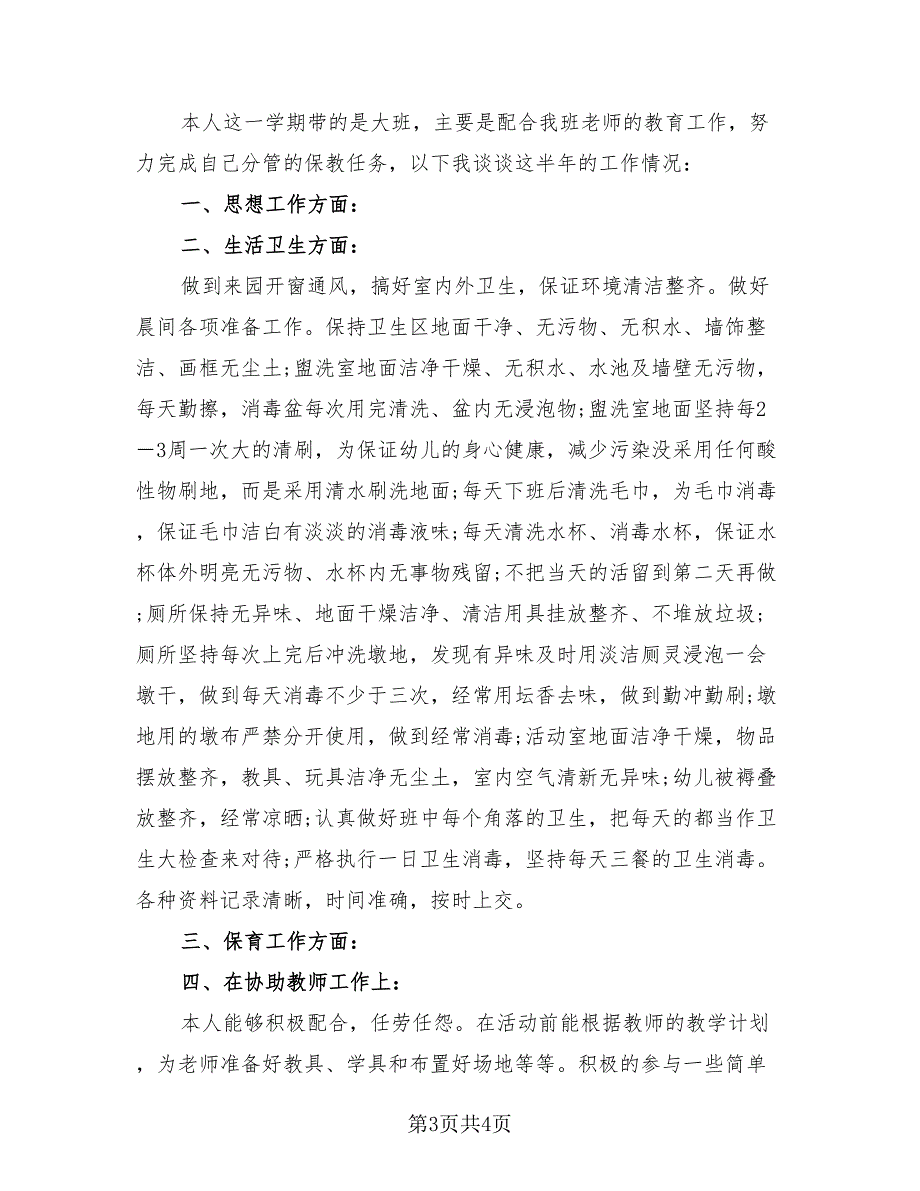 本人这一学期带的是大班，主要是配合我班老师的教育工作，努
力完成自己分管的保教任务，以下我谈谈这半年的工作情况：
一、思想工作方面：
二、生活卫生方面：
做到来园开窗通风，搞好室内外卫生，保证环境清洁整齐。做好
晨间各项准备工作。保持卫生区地面干净、无污物、无积水、墙饰整
洁、画框无尘土;盥洗室地面洁净干燥、无积水、水池及墙壁无污物，
每天勤擦，消毒盆每次用完清洗、盆内无浸泡物;盥洗室地面坚持每2
－3周一次大的清刷，为保证幼儿的身心健康，减少污染没采用任何酸
性物刷地，而是采用清水刷洗地面;每天下班后清洗毛巾，为毛巾消毒
，保证毛巾洁白有淡淡的消毒液味;每天清洗水杯、消毒水杯，保证水
杯体外明亮无污物、水杯内无事物残留;不把当天的活留到第二天再做
;厕所保持无异味、地面干燥洁净、清洁用具挂放整齐、不堆放垃圾;
厕所坚持每次上完后冲洗墩地，发现有异味及时用淡洁厕灵浸泡一会
墩干，做到每天消毒不少于三次，经常用坛香去味，做到勤冲勤刷;墩
地用的墩布严禁分开使用，做到经常消毒;活动室地面洁净干燥，物品
摆放整齐，教具、玩具洁净无尘土，室内空气清新无异味;幼儿被褥叠
放整齐，经常凉晒;认真做好班中每个角落的卫生，把每天的都当作卫
生大检查来对待;严格执行一日卫生消毒，坚持每天三餐的卫生消毒。
各种资料记录清晰，时间准确，按时上交。
三、保育工作方面：
四、在协助教师工作上：
本人能够积极配合，任劳任怨。在活动前能根据教师的教学计划
，为老师准备好教具、学具和布置好场地等等。积极的参与一些简单
第3页共4页